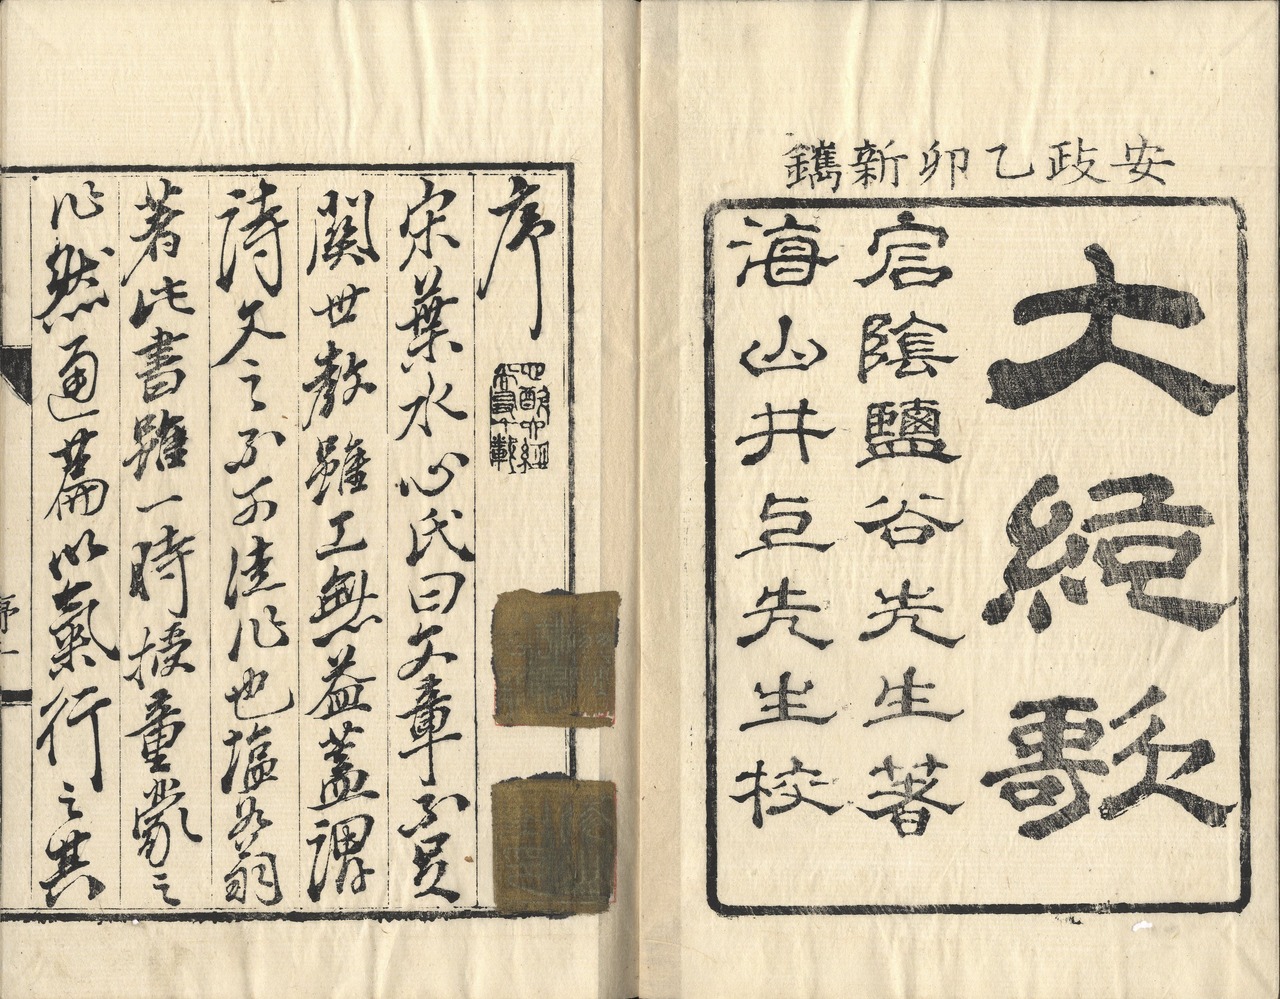 安政乙卯新鐫
大統歌
宕陰鹽谷先生著
海山井上先生校
序
宋葉水心氏曰文章不足
關世教雖工無益蓋謂
詩文之不可徒作也塩谷翁
著此書雖一時授童蒙之
作然通篇以氣行之其
序一